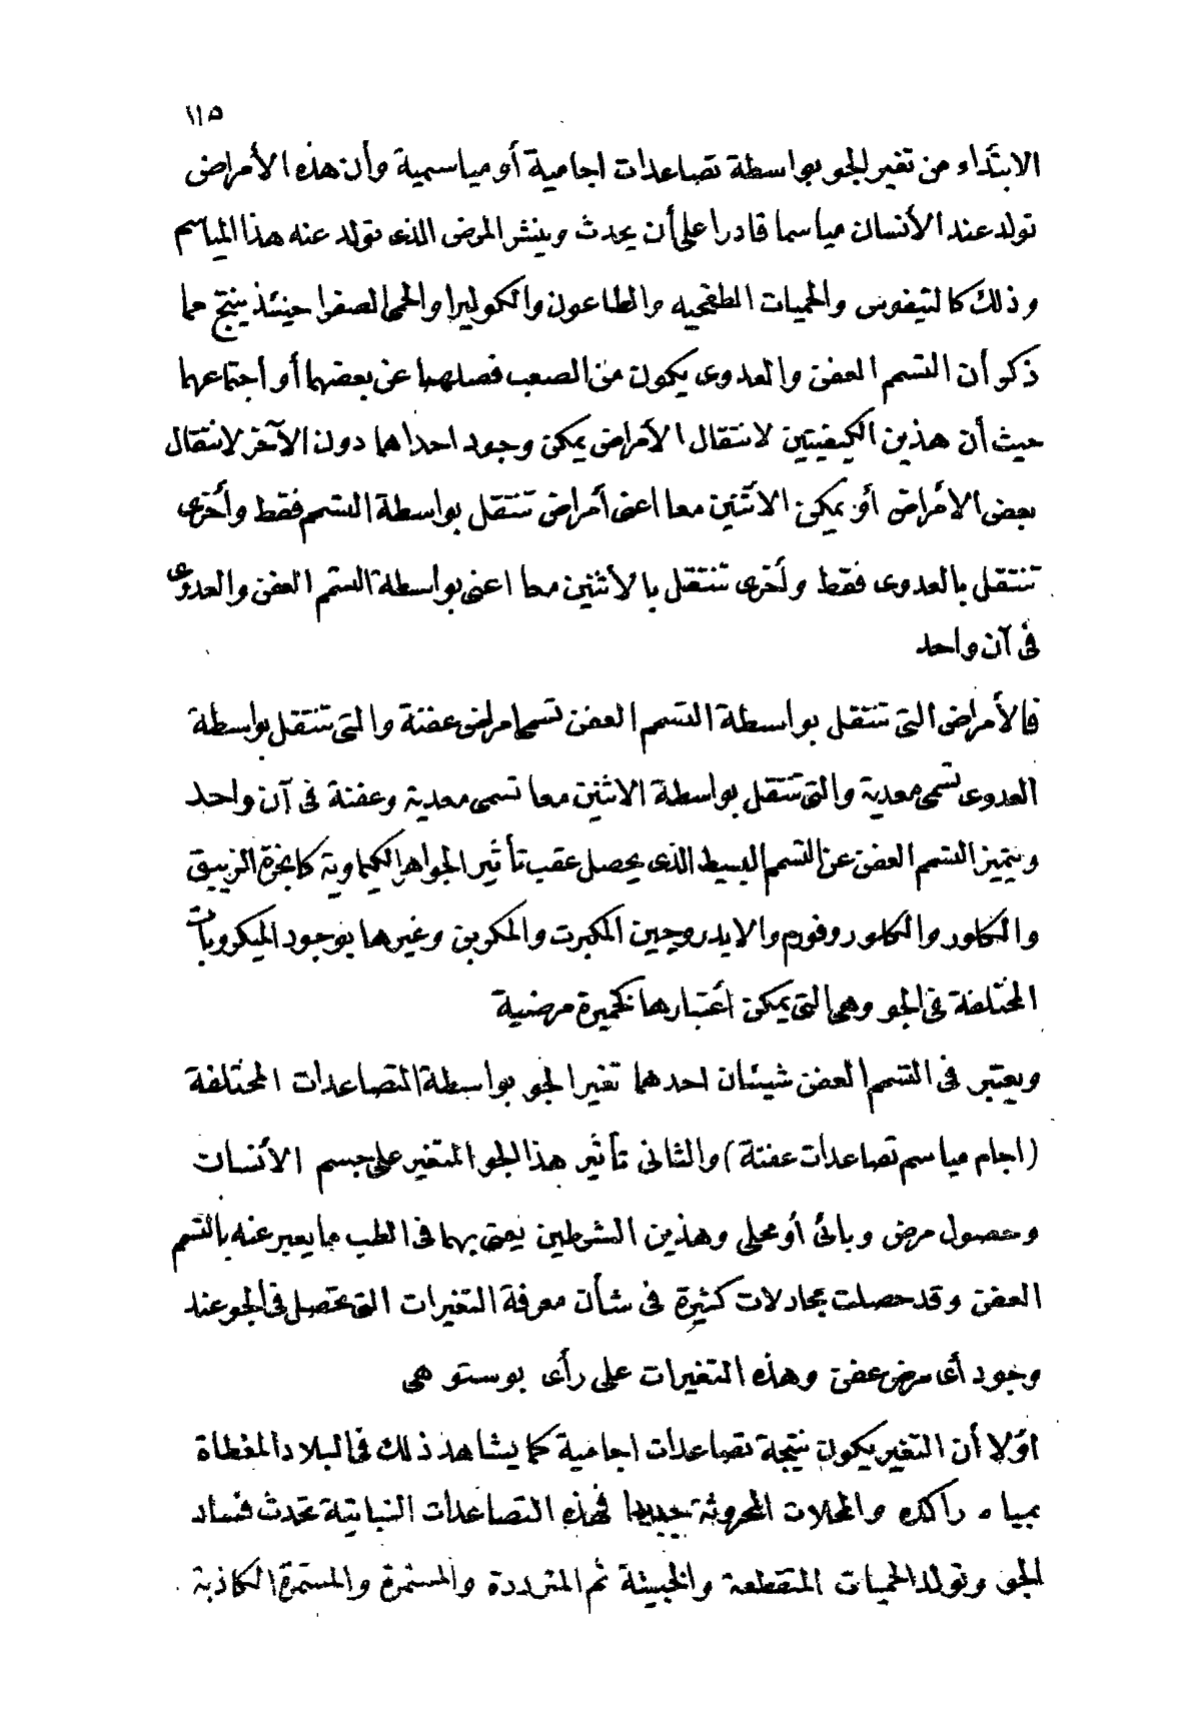 ١١٥
الابتداء من تغير الجو بواسطة تصاعدات اجامية أو مياسمية وأن هذه الأمراض
تولد عند الأنسان مياسما قادرا على أن يحدث وينشر المرض الذى تولد عنه هذا المياسم
وذلك كالتيفوس والحميات الطفحيه والطاعون والكوليرا والحمى الصفرا حينئذ ينتج مما
ذكر أن التسمم العفن والعدوى يكون من الصعب فصلهما عن بعضهما أو اجتماعهما
حيث أن هذين الكيفيتين لانتقال الأمراض يمكن وجود احداهما دون الآخر لانتقال
بعض الأمراض أو يمكن الاثنين معا اعنى أمراض تنتقل بواسطة التسمم فقط وأخرى
تنتقل بالعدوى فقط وأخرى تنتقل بالاثنين معا اعنى بواسطة التسمم العفن والعدوى
فى آن واحد
فالأمراض التى تنتقل بواسطة التسمم العفن تسمى امراض عفنة والتى تنتقل بواسطة
العدوى تسمى معدية والتى تنتقل بواسطة الاثنين معا تسمى معدية وعفنة فى آن واحد
ويتميز التسمم العفن عن التسمم البسيط الذى يحصل عقب تأثير الجواهر الكيماوية كابخرة الزيبق
والكلور والكلوروفورم والايدروجين المكبرت والمكربن وغيرها بوجود الميكروبات
المختلفة فى الجو وهى التى يمكن أعتبارها كخميرة مرضية
ويعتبر فى التسمم العفن شيئان احدهما تغير الجو بواسطة التصاعدات المختلفة
(اجام مياسم تصاعدات عفنة) والثانى تأثير هذا الجو المتغير على جسم الأنسان
وحصول مرض وبائى أو محلى وهذين الشرطين يعتنى بهما فى الطب مايعبر عنه بالتسمم
العفن وقد حصلت مجادلات كثيرة فى شأن معرفة التغيرات التى تحصل فى الجو عند
وجود أى مرض عفن وهذه التغيرات على رأى بوستو هى
اولا أن التغير يكون نتيجة تصاعدات اجامية كما يشاهد ذلك فى البلاد المغطاة
بمياه راكده والمحلات المحروثة جديدا فهذه التصاعدات النباتية تحدث فساد
الجو وتولد الحميات المتقطعة والخبيثة ثم المترددة والمستمرة والمستمرة الكاذبة